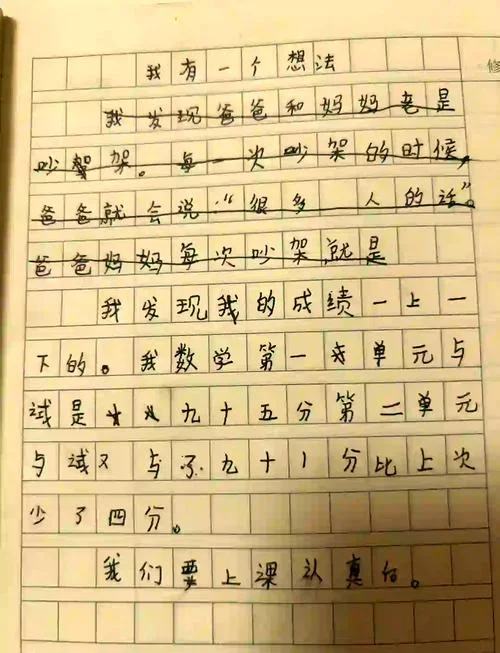 我有一个想法
我发现爸爸和妈妈老是
吵架架。每一次吵架的时候,
爸爸就会说“很多 人的话”。
爸爸妈妈每次吵架就是
我发现我的成绩一上一
下的。我数学第一次单元与
试是九十五分第二单元
与试又与了九十1分比上次
少了四分。
我们要上课认真白。
修